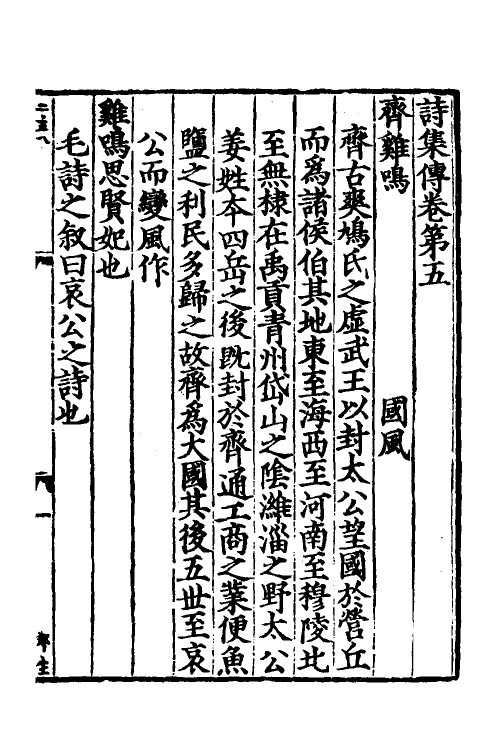 詩集傳卷第五
齊雞鳴　國風
齊古爽鳩氏之虛武王以封太公望國於營丘
而爲諸侯伯其地東至海西至河南至穆陵北
至無棣在禹貢青州岱山之陰濰淄之野太公
姜姓夲四岳之後旣封於齊通工商之業便魚
鹽之利民多歸之故齊爲大國其後五世至哀
公而變風作
雞鳴思賢妃也
毛詩之叙曰哀公之詩也